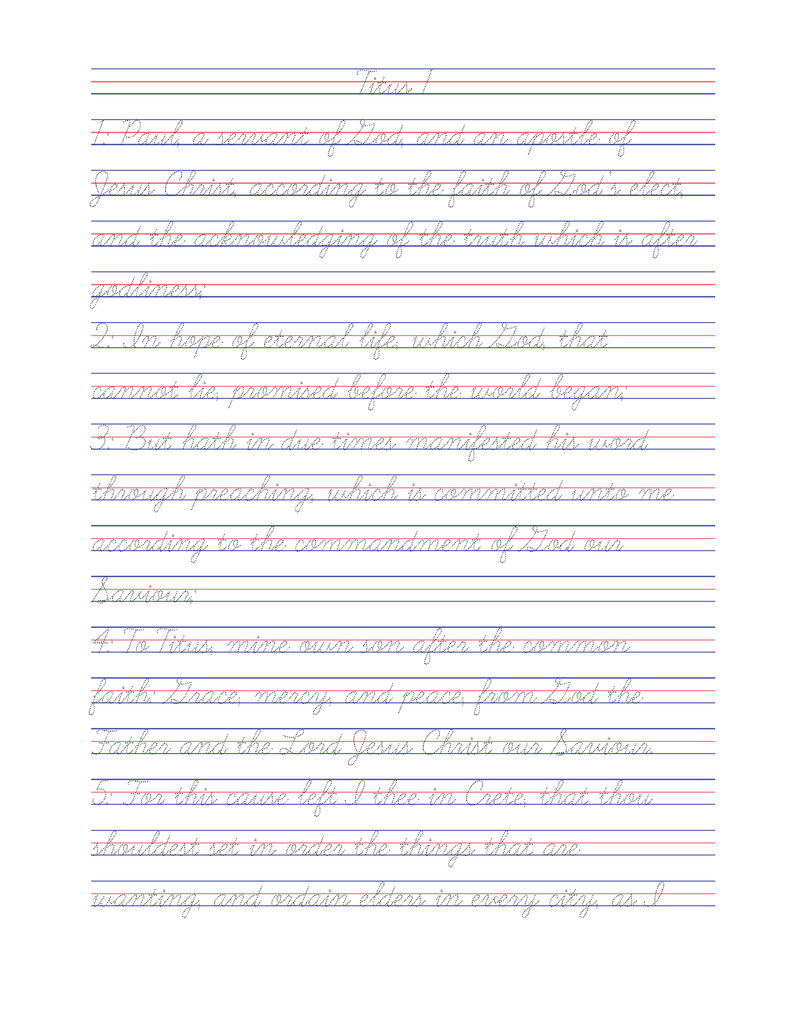 Titus 1
1: Paul, a servant of God, and an apostle of
Jesus Christ, according to the faith of God's elect,
and the acknowledging of the truth which is after
godliness;
2: In hope of eternal life, which God, that
cannot lie, promised before the world began;
3: But hath in due times manifested his word
through preaching, which is committed unto me
according to the commandment of God our
Saviour;
4: To Titus, mine own son after the common
faith: Grace, mercy, and peace, from God the
Father and the Lord Jesus Christ our Saviour.
5: For this cause left I thee in Crete, that thou
shouldest set in order the things that are
wanting, and ordain elders in every city, as I